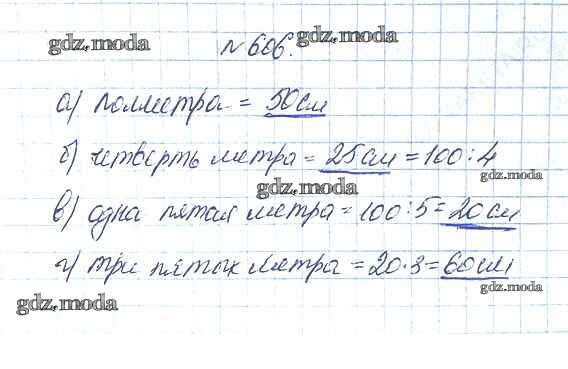 gdz.moda № 606. gdz.moda
а) полметра = 50 см
б) четверть метра = 25 см = 100 : 4
gdz.moda gdz.moda
в) одна пятая метра = 100 : 5 = 20 см
г) три пятых метра = 20 · 3 = 60 см
gdz.moda gdz.moda